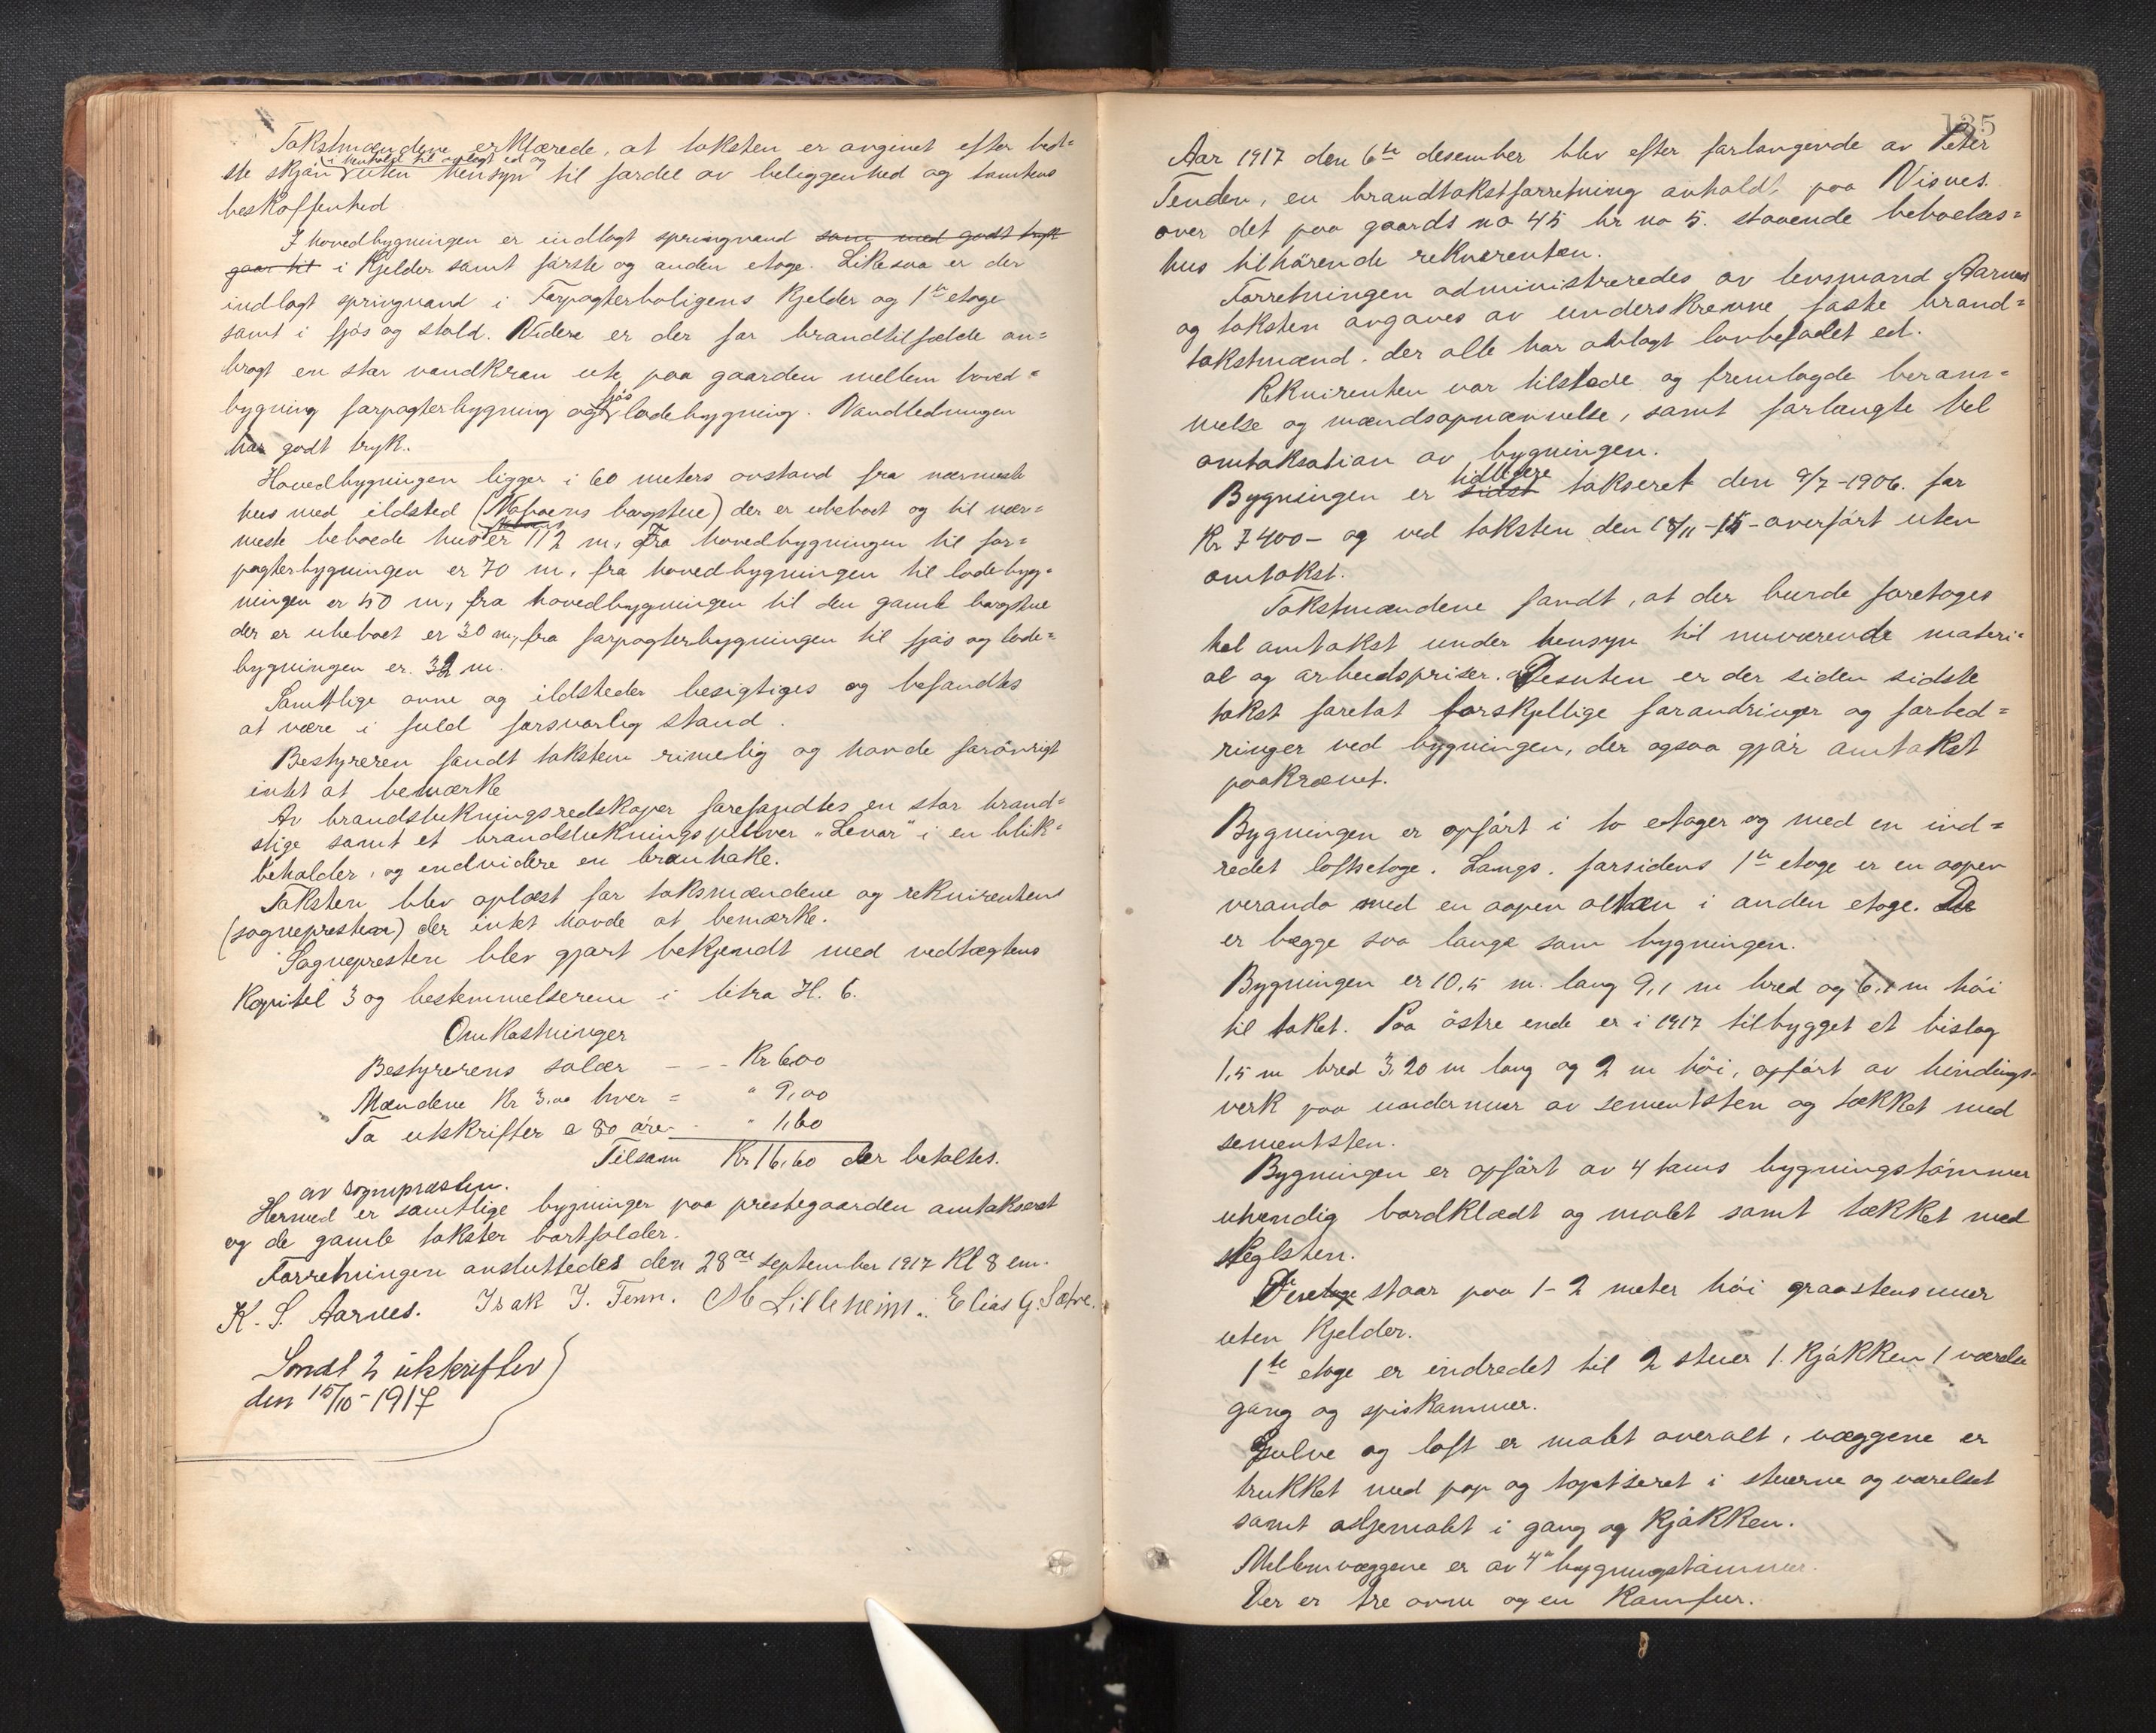 Takstmændene erklærede, at taksten er avgivet efter bed=
i henhold til avlagt ed og
ste skjøn uten hensyn til fordel av beliggenhed og tomtens
beskaffenhed
I hovedbygningen er indlagt springvand som med godt tryk
gaar til i kjelder samt første og anden etage. Likesaa er der
indlagt springvand i Forpagterboligens kjelder og 1ste etage
samt i fjøs og stald. Videre er der for brandtilfælde an=
bragt en stor vandkran ute paa gaarden mellem hoved=
fjøs
bygning forpagterbygning og ladebygning. Vandledningen
har godt tryk.
Hovedbygningen ligger i 60 meters avstand fra nærmeste
hus med ildsted (Naboens borgstue) der er ubeboet og til nær=
meste beboede hus er 112 m, Fra hovedbygningen til for=
pagterbygningen er 70 m, fra hovedbygningen til ladebyg=
ningen er 50 m, fra hovedbygningen til den gamle borgstue
der er ubeboet er 30 m, fra forpagterbygningen til fjøs og lade=
bygningen er 32 m.
Samtlige ovne og ildsteder besigtiges og befandtes
at være i fuld forsvarlig stand.
Bestyreren fandt taksten rimelig og havde forøvrigt
intet at bemærke
Av brandslukningsredskaper forefandtes en stor brand=
stige samt et brandslukningspulver "Levar" i en blik=
beholder, og endvidere en branhake.
Taksten blev oplæst for taksmændene og rekvirenten
(sognepresten) der intet havde at bemærke.
Sognepresten blev gjort bekjendt med vedtægtens
Kapitel 3 og bestemmelserene i litra H. 6.
Omkostninger
Bestyrerens salær - - - Kr 6,00
Mændene Kr 3,00 hver = " 9,00
To utskrifter a 80 øre - " 1,60
Tilsam Kr 16,60 der betaltes.
av sognpræsten.
Hermed er samtlige bygninger paa prestegaarden omtakseret
og de gamle takster bortfalder.
Forretningen avsluttedes den 28de september 1917 Kl 8 em.
K. S. Aarnes. Isak J. Tenn. M Lilleheim. Elias G. Sætre.
Sendt 2 utskrifter
den 15/10-1917
135
Aar 1917 den 6te desember blev efter forlangende av Peter
Tenden, en brandtakstforretning avholdt paa Visnes
over det paa gaards no 45 br no 5. staaende beboelses=
hus tilhørende rekvirenten.
Forretningen administreredes av lensmand Aarnes
og taksten avgaves av underskrevne faste brand=
takstmænd. der alle har avlagt lovbefalet ed.
Rekvirenten var tilstede og fremlagde beram=
melse og mændsopnævnelse, samt forlangte hel
omtaksation av bygningen.
tidligere
Bygningen er sidst takseret den 9/7-1906. for
Kr 7400- og ved taksten den 18/11-15- overført uten
omtakst.
Takstmændene fandt, at der burde foretages
hel omtakst under hensyn til nuværende materi=
al og arbeidspriser. Desuten er der siden sidste
takst foretat forskjellige forandringer og forbed=
ringer ved bygningen, der ogsaa gjør omtakst
paakrævet.
Bygningen er opført i to etager og med en ind=
redet loftsetage. Langs. forsidens 1ste etage er en aapen
veranda med en aapen altan i anden etage. De
er begge saa lange som bygningen.
Bygningen er 10,5 m. lang 9,1 m bred og 6,1 m høi
til taket. Paa østre ende er i 1917 tilbygget et bislag
1,5 m bred 3,20 m lang og 2 m høi, opført av bindings=
verk paa undermur av sementsten og tækket med
sementsten.
Bygningen er opført av 4 toms bygningstømmer
utvendig bordklædt og malet samt tækket med
teglsten.
Den staar paa 1-2 meter høi graastensmur
uten Kjelder.
1ste etage er indredet til 2 stuer 1. kjøkken 1 værelse
gang og spiskammer.
Gulve og loft er malet overalt, væggene er
trukket med pap og tapetseret i stuerne og værelset
samt oljemalet i gang og kjøkken.
Mellemvæggene er av 4" bygningstømmer.
Der er tre ovne og en Komfur.